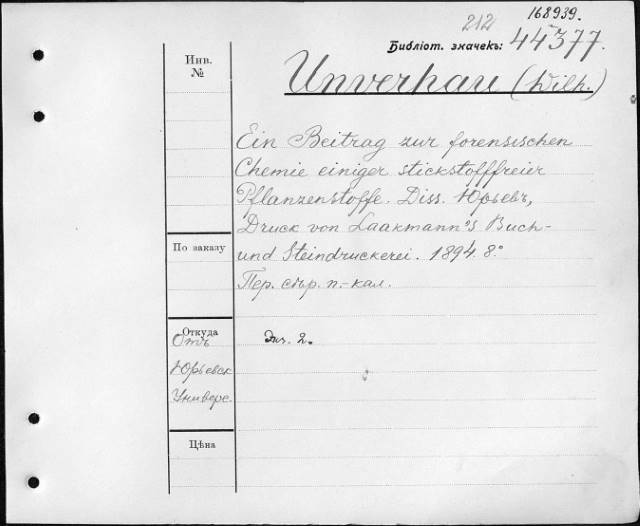 212 168939.
Библіот. значекъ: 44377.
Инв.
№
Unverhau (Wilh.)
Ein Beitrag zur forensischen
Chemie einiger stickstofffreier
Pflanzenstoffe. Diss. Юрьевъ,
Druck von Laakmann's Buch-
und Steindruckerei. 1894. 8.°
Пер. сѣр. п.-кал.
По заказу
Откуда
Отъ
Юрьевск
Универс.
Экз. 2.
Цѣна